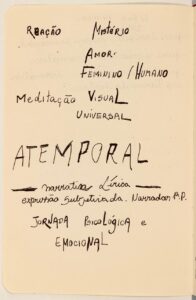 REAÇÃO MATÉRIO
AMOR.
FEMININO / HUMANO
MEDITAÇÃO VISUAL
UNIVERSAL
ATEMPORAL
— narrativa Lírica —
expressão subjetivada. Narrador 1ª P.
JORNADA PSICOLÓGICA e
EMOCIONAL